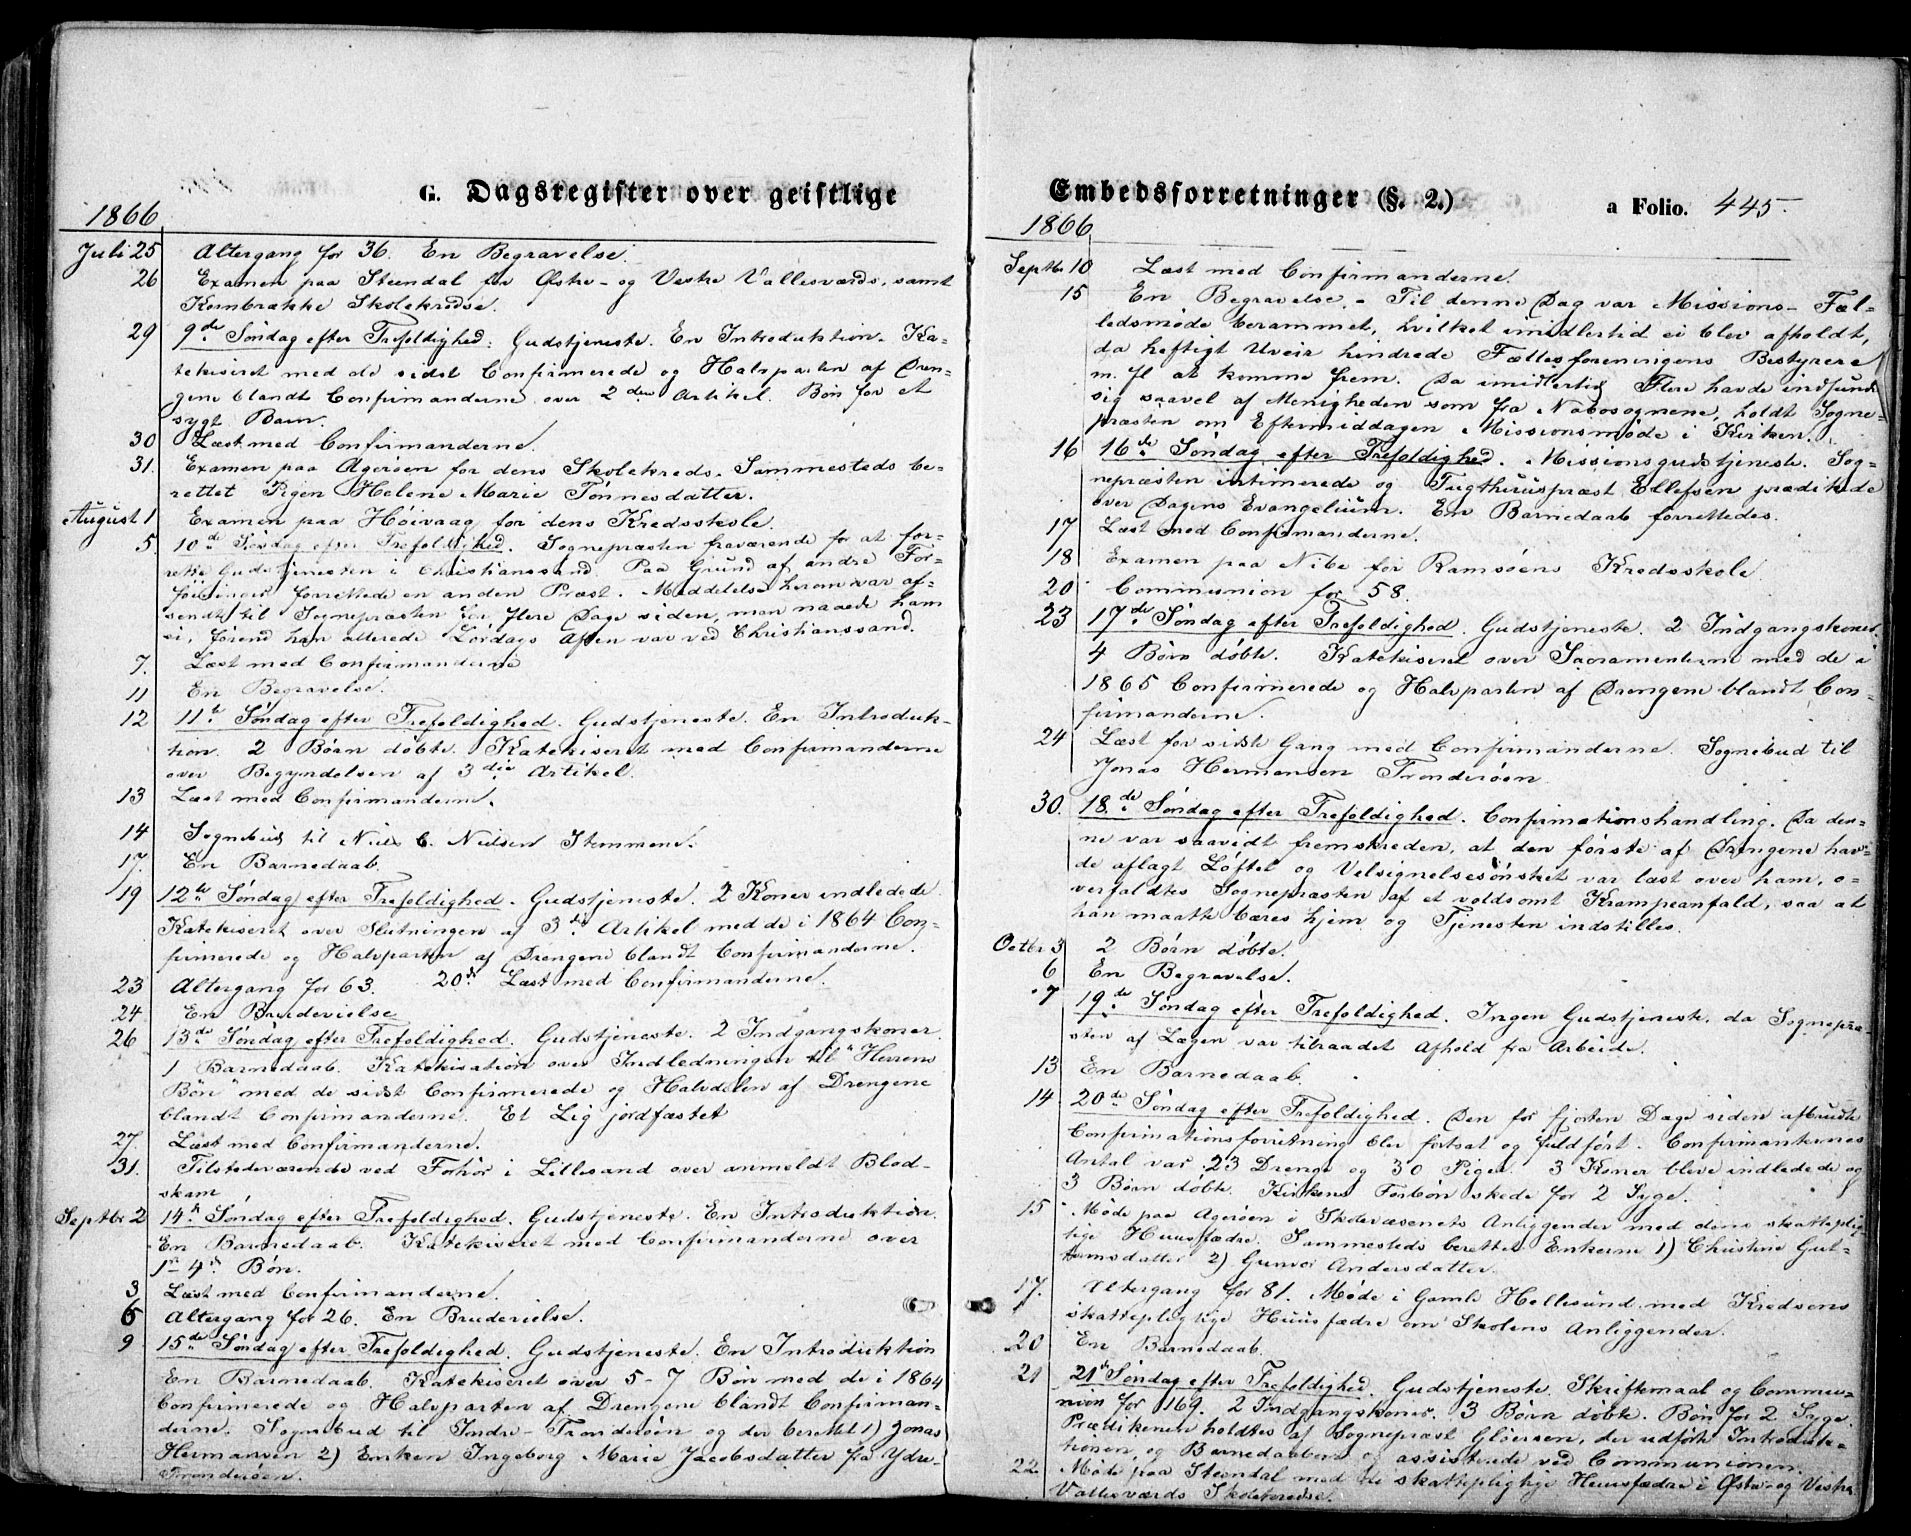 G. Dagsregister over geistlige
1866
Juli 25 Altergang for 36. En Begravelse.
26 Examen paa Steendal for Østre- og Vestre Vallesværds, samt
Kjernbrække Skolekredse.
29 9de Søndag efter Trefoldighed: Gudstjeneste. En Introduktion. Ka-
tekiseret med de sidst Confirmerede og Halvparten af Dren-
gene blandt Confirmanderne over 2den Artikel. Bøn for et
sygt Barn.
30 Læst med Confirmanderne.
31. Examen paa Agerøen for dens Skolekreds. Sammesteds be-
rettet Pigen Helene Marie Tønnesdatter.
August 1 Examen paa Høivaag for dens Kredsskole.
5. 10de Søndag efter Trefoldighed. Sognepræsten fraværende for at for-
rette Gudstjenesten i Christianssand. Paa Grund af andre For-
føininger forrettede en anden Præst. Meddelelse herom var af-
sendt til Sognepræsten flere Dage siden, man naaede ham
ei, førend han allerede Lørdags Aften var ved Christianssand.
7. Læst med Confirmanderne
11 En Begravelse.
12 11te Søndag efter Trefoldighed. Gudstjeneste. En Introduk-
tion. 2 Børn døbte. Katekiseret med Confirmanderne
over Begyndelsen af 3die Artikel.
13 Læst med Confirmanderne.
14 Sognebud til Niels C. Nielsen Stemmene.
17. En Barnedaab.
19 12te Søndag efter Trefoldighed. Gudstjeneste. 2 Koner indledede.
Katekiseret over Slutningen af 3die Artikel med de i 1864 Con-
firmerede og Halvparten af Drengene blandt Confirmanderne.
23 Altergang for 63. 20de Læst med Confirmanderne.
24 En Brudevielse
26 13de Søndag efter Trefoldighed. Gudstjeneste. 2 Indgangskoner.
1 Barnedaab. Katekisation over Indledningen til "Herrens
Bøn" med de sidst Confirmerede og Halvdelen af Drengene
blandt Confirmanderne. Et Lig jordfæstet
27. Læst med Confirmanderne.
31. Tilstedeværende ved Forhør i Lillesand over anmeldt Blod-
skam
Septbr 2 14de Søndag efter Trefoldighed. Gudstjeneste. En Introduktion.
En Barnedaab. Katekiseret med Confirmanderne over
1ste-4de Bøn.
3 Læst med Confirmanderne.
6 Altergang for 26. En Brudevielse.
9 15de Søndag efter Trefoldighed. Gudstjeneste. En Introduktion
En Barnedaab. Katekiseret over 5-7 Bøn med de i 1864
Confirmerede og Halvparten af Drengene blandt Confirman-
derne. Sognebud til Indre-Tronderøen og der berettet 1) Jonas
Hermansen 2) Enken Ingeborg Marie Jacobsdatter fra Ydre-
Tronderøen.
Embedsforretninger (§. 2.)
a Folio. 445.
1866
Septbr 10 Læst med Confirmanderne.
15 En Begravelse. - Til denne Dag var Missions-Fæl-
ledsmøde berammet, hvilket imidlertid ei blev afholdt,
da heftigt Uveir hindrede Fællesforeningens Bestyrere
m. fl at komme frem. Da imidlertid Flere havde indfundet
sig saavel af Menigheden som fra Nabosognene, holdt Sogne-
præsten om Eftermiddagen Missionsmøde i Kirken.
16 16de Søndag efter Trefoldighed. Missionsgudstjeneste. Sog-
nepræsten intimerede og Tugthuuspræst Ellefsen prædikede
over Dagens Evangelium. En Barnedaab forrettedes.
17 Læst med Confirmanderne.
18 Examen paa Nibe for Ramsøens Kredsskole
20 Communion for 58.
23 17de Søndag efter Trefoldighed. Gudstjeneste. 2 Indgangskoner.
4 Børn døbte. Katekiseret over Sacramenterne med de i
1865 Confirmerede og Halvparten af Drengene blandt Con-
firmanderne.
24 Læst for sidste Gang med Confirmanderne. Sognebud til
Jonas Hermansen Tronderøen
30. 18de Søndag efter Trefoldighed. Confirmationshandling. Da den-
ne var saavidt fremskreden, at den første af Drengene hav-
de aflagt Løftet og Velsignelsesønsket var læst over ham, o-
verfaldtes Sognepræsten af et voldsomt Krampeanfald, saa at
han maatte bæres hjem og Tjenesten indstilles.
Octbr 3 2 Børn døbte.
6 En Begravelse.
7 19de Søndag efter Trefoldighed. Ingen Gudstjeneste, da Sognepræ-
sten af Lægen var tilraadet Afhold fra Arbeide.
13 En Barnedaab.
14 20de Søndag efter Trefoldighed. Den for fjorten Dage siden afbrudte
Confirmationsforretning blev fortsat og fuldført. Confirmanternes
Antal var 23 Drenge og 30 Piger. 3 Koner bleve indledede og
3 Børn døbte. Kirkens Forbøn skede for 2 Syge.
15 Møde paa Agerøen i Skolevæsenets Anliggender med dens skatteplig-
tige Huusfædre. Sammesteds berettet Enkerne 1) Christine Gut-
tormsdatter 2) Gunvor Andersdatter.
17. Altergang for 81. Møde i Gamle Hellesund med Kredsens
skattepligtige Huusfædre om Skolens Anliggender.
20 En Barnedaab.
21 21de Søndag efter Trefoldighed. Gudstjeneste. Skriftemaal og Commu-
nion for 169. 2 Indgangskoner. 3 Børn døbte. Bøn for 2 Syge.
Prædikenen holdtes af Sognepræst Gløersen, der udførte Introduk-
tionen og Barnedaabene og assisterede ved Communionen.
22. Møde paa Steendal med de skattepligtige Huusfædre i Østre og Vestre
Vallesværds Skolekredse.